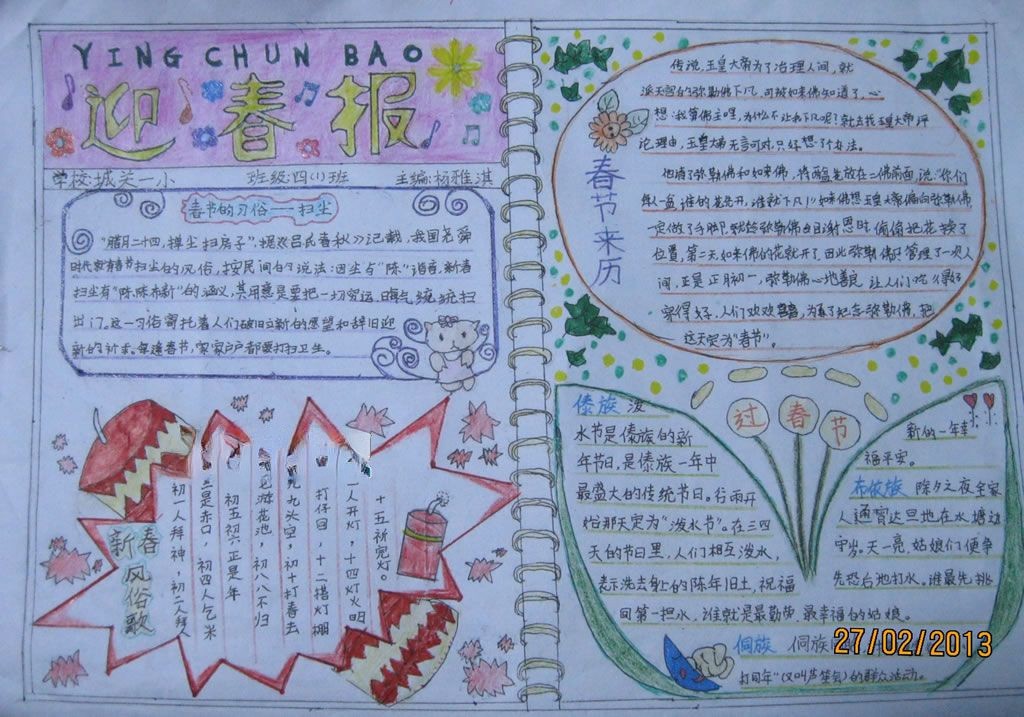 YING CHUN BAO
迎春报
学校:城关一小 班级:四(1)班 主编:杨雅淇
春节的习俗——扫尘
"腊月二十四,掸尘扫房子",据《吕氏春秋》记载,我国尧舜
时代就有春节扫尘的风俗,按民间的说法:因尘与"陈"谐音,新春
扫尘有"除陈布新"的涵义,其用意是要把一切穷运、晦气统统扫
出门。这一习俗寄托着人们破旧立新的愿望和辞旧迎
新的祈求。每逢春节,家家户户都要打扫卫生。
新春风俗歌
初一人拜神,初二人拜人
三是赤口,初四人乞米
初五初六正是年
游花池,初八八不归
九头空,初十打春去
打仔目,十二搭灯棚
人开灯,十四灯火明
十五祈完灯。
春节来历
传说,玉皇大帝为了治理人间,就
派天宫的弥勒佛下凡,可被如来佛知道了,心
想:我算佛主哩,为什么不让我下凡呢?就去找玉皇大帝评
论理由,玉皇大帝无言可对,只好想了个办法。
他请了弥勒佛和如来佛,将两盆花放在二佛前面,说:"你们
每人一盆,谁的花先开,谁就下凡
位置,第二天如来佛的花就开了,因此弥勒佛只管理了一次人
间,正是正月初一,弥勒佛心地善良,让人们吃
穿得好,人们欢欢喜喜,为了纪念弥勒佛,把
这天定为"春节"。
过春节
傣族 泼
水节是傣族的新
年节日,是傣族一年中
最盛大的传统节日。谷雨开
始那天定为"泼水节"。在三四
天的节日里,人们相互泼水,
表示洗去身上的陈年旧土,祝福
新的一年幸
福平安。
布依族 除夕之夜全家
人通宵达旦地在水塘边
守岁。天一亮,姑娘们便争
先恐后地打水。谁最先挑
回第一担水,谁就是最勤劳、最幸福的姑娘。
侗族 侗族
打同年"(又叫芦笙会)的群众活动。
27/02/2013